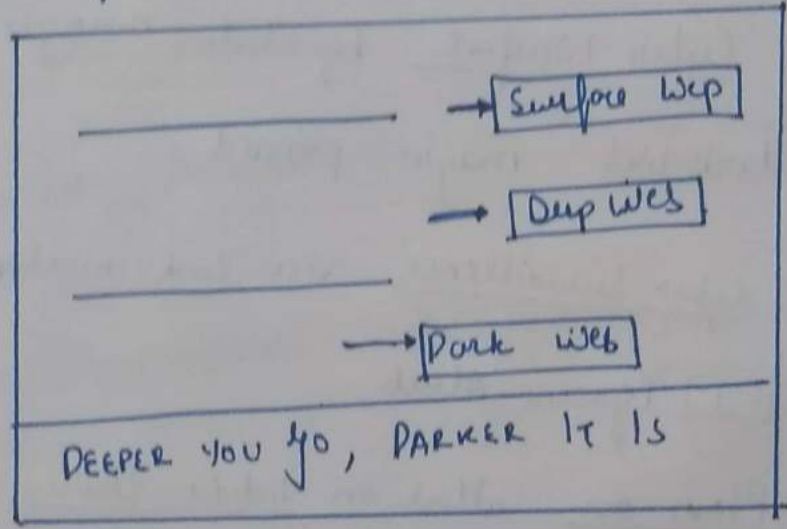 Surface Web
Deep Web
Dark Web
DEEPER YOU go, DARKER IT IS